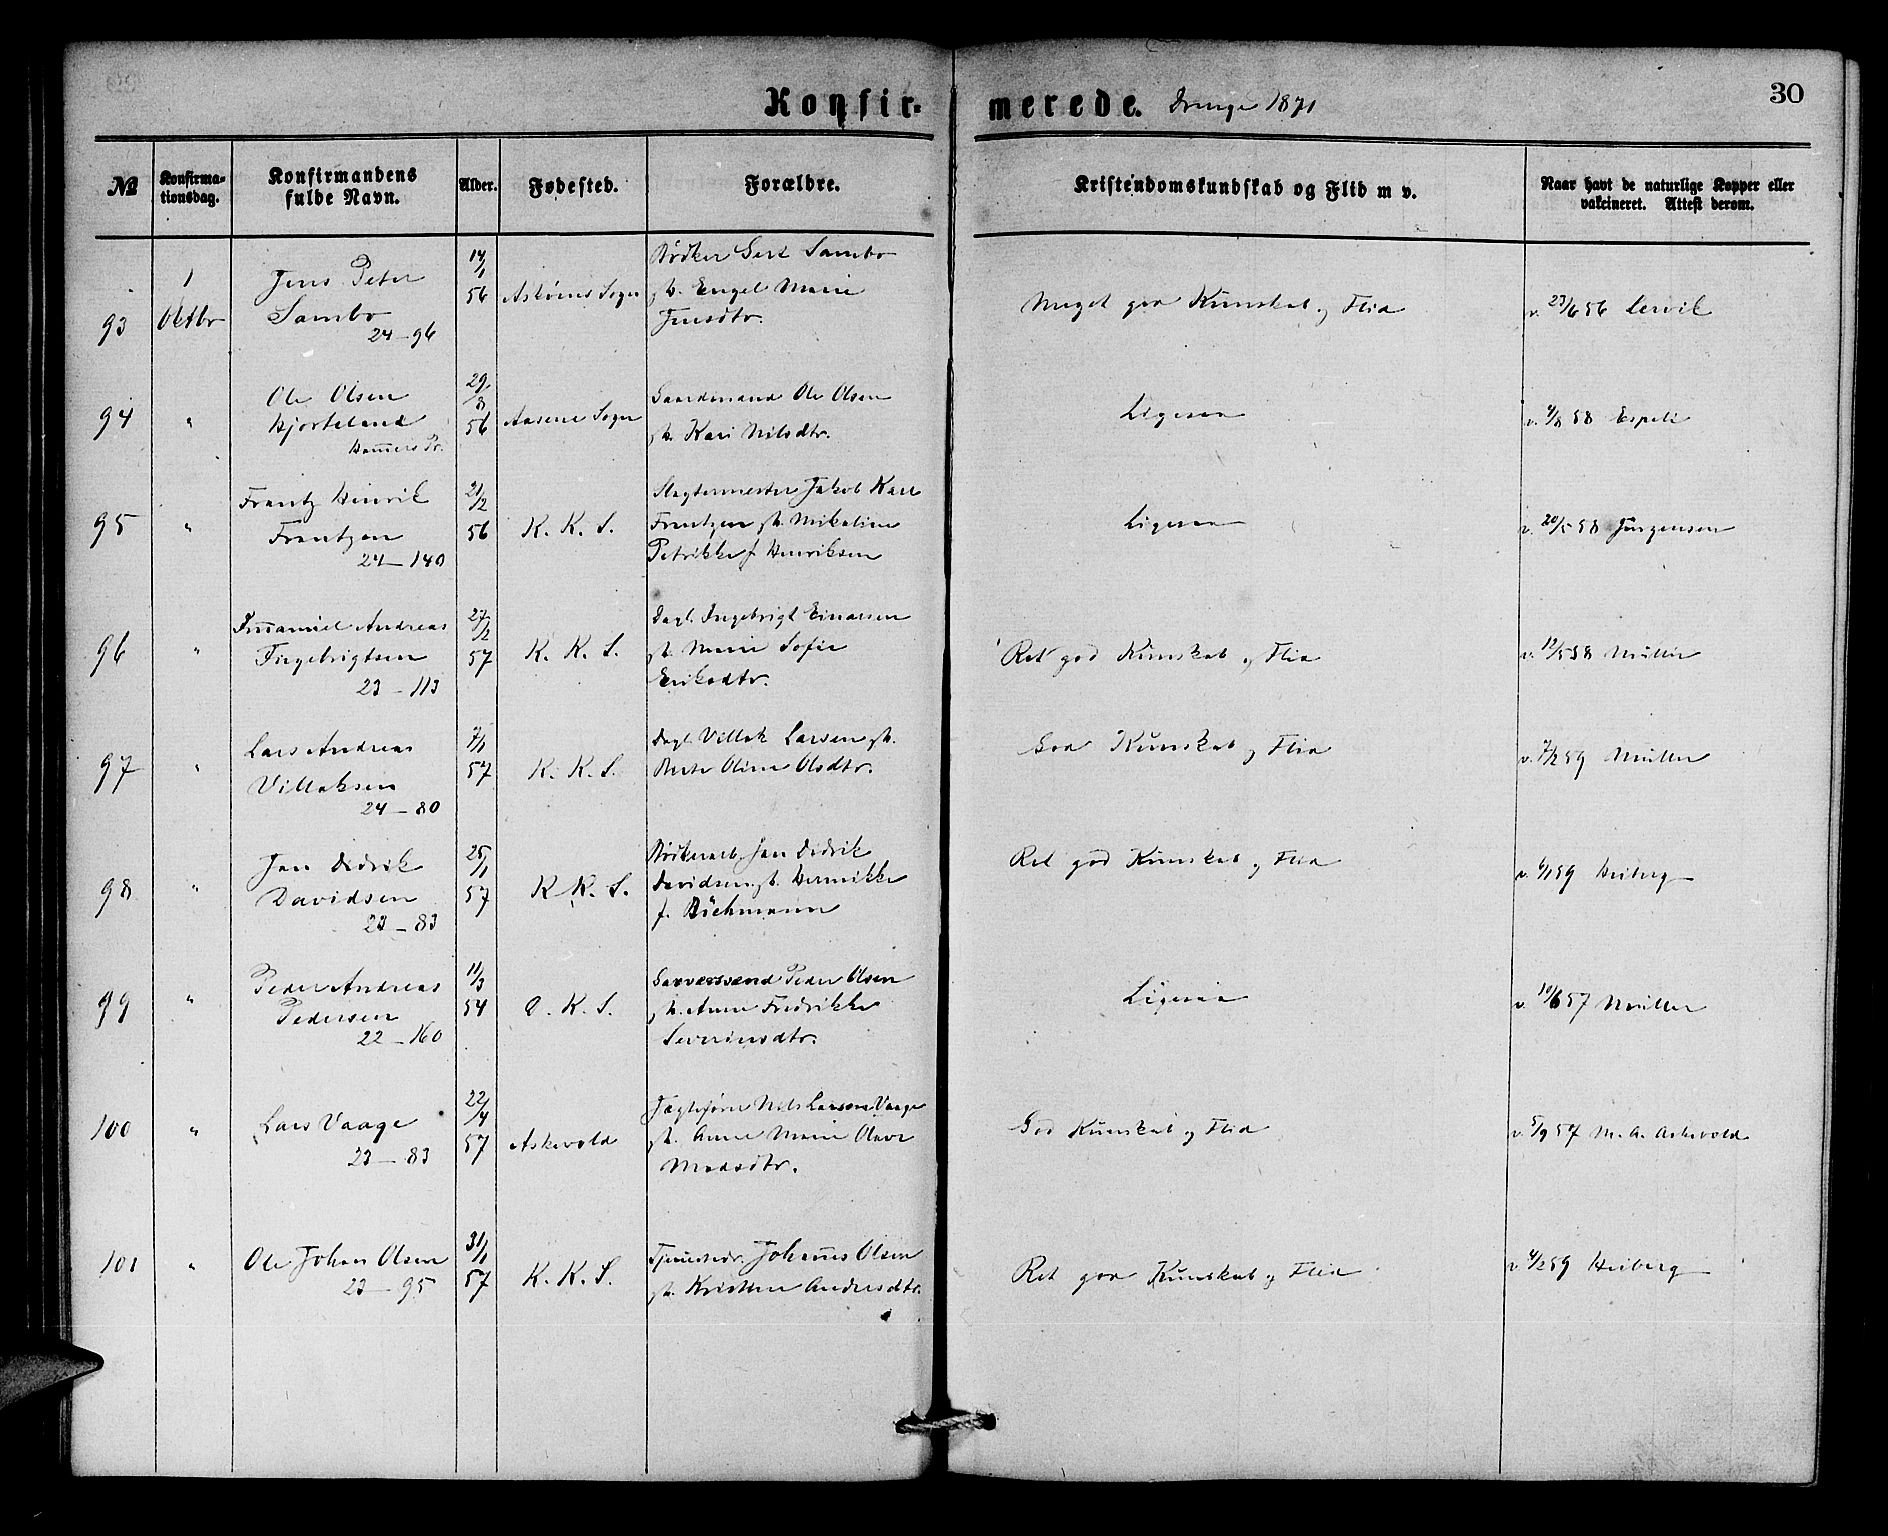 Konfir- merede. Drenge 1871
30
№ Konfirma-tionsdag. Konfirmandens fulde Navn. Alder. Fødested. Forældre. Kristendomskundskab og Flid m v. Naar havt de naturlige Kopper eller vakcineret. Attest derom.
93 1 Oktbr Jens Peter Sambo 24-96 14/1 56 Askøens Sogn Bødker Gert Sambo h. Engel Marie Jensdtr. Meget god Kunskab og Flid v. 23/6 56 Lervik
94 " Ole Olsen Hjorteland Hammers Pr. 29/8 56 Aasene Sogn Gaardmand Ole Olsen h. Kari Nilsdtr. Ligesaa v. 4/8 58 Espeli
95 " Frantz Henrik Frantzen 24-140 21/2 56 K. K. S. Slagtermester Jakob Karl Frantzen h. Mikaline Petrikke f. Henriksen Ligesaa v. 20/5 58 Jürgensen
96 " Imanuel Andreas Ingebrigtsen 23-113 27/2 57 K. K. S. Dagl. Ingebrigt Einarsen h. Marie Sofie Eriksdtr. Ret god Kunskab og Flid v. 12/5 58 Müller
97 " Lars Andreas Villaksen 24-80 7/1 57 K. K. S. Dagl. Villak Larsen h. Berte Oline Olsdtr. God Kunskab og Flid v. 7/2 59 Müller
98 " Jan Didrik Davidsen 23-83 25/1 57 K. K. S. Bødkerarb. Jan Didrik Davidsen h. Henrikke f. Büchmann Ret god Kunskab og Flid v. 6/1 59 Heiberg
99 " Peder Andreas Pedersen 22-160 11/3 54 D. K. S. Gasværksmand Peder Olsen h. Anne Fredrikke Severinsdtr. Ligesaa v. 10/6 57 Müller
100 " Lars Vaage 23-83 22/4 57 Askevold Jægtefører Nils Larsen Vaage h. Anne Marie Olave Madsdtr. God Kunskab og Flid v. 5/9 57 M. A. Askevold
101 " Ole Johan Olsen 23-95 31/1 57 K. K. S. Tjenestedr. Johannes Olsen h. Kristine Andersdtr. Ret god Kunskab og Flid v. 4/2 59 Heiberg